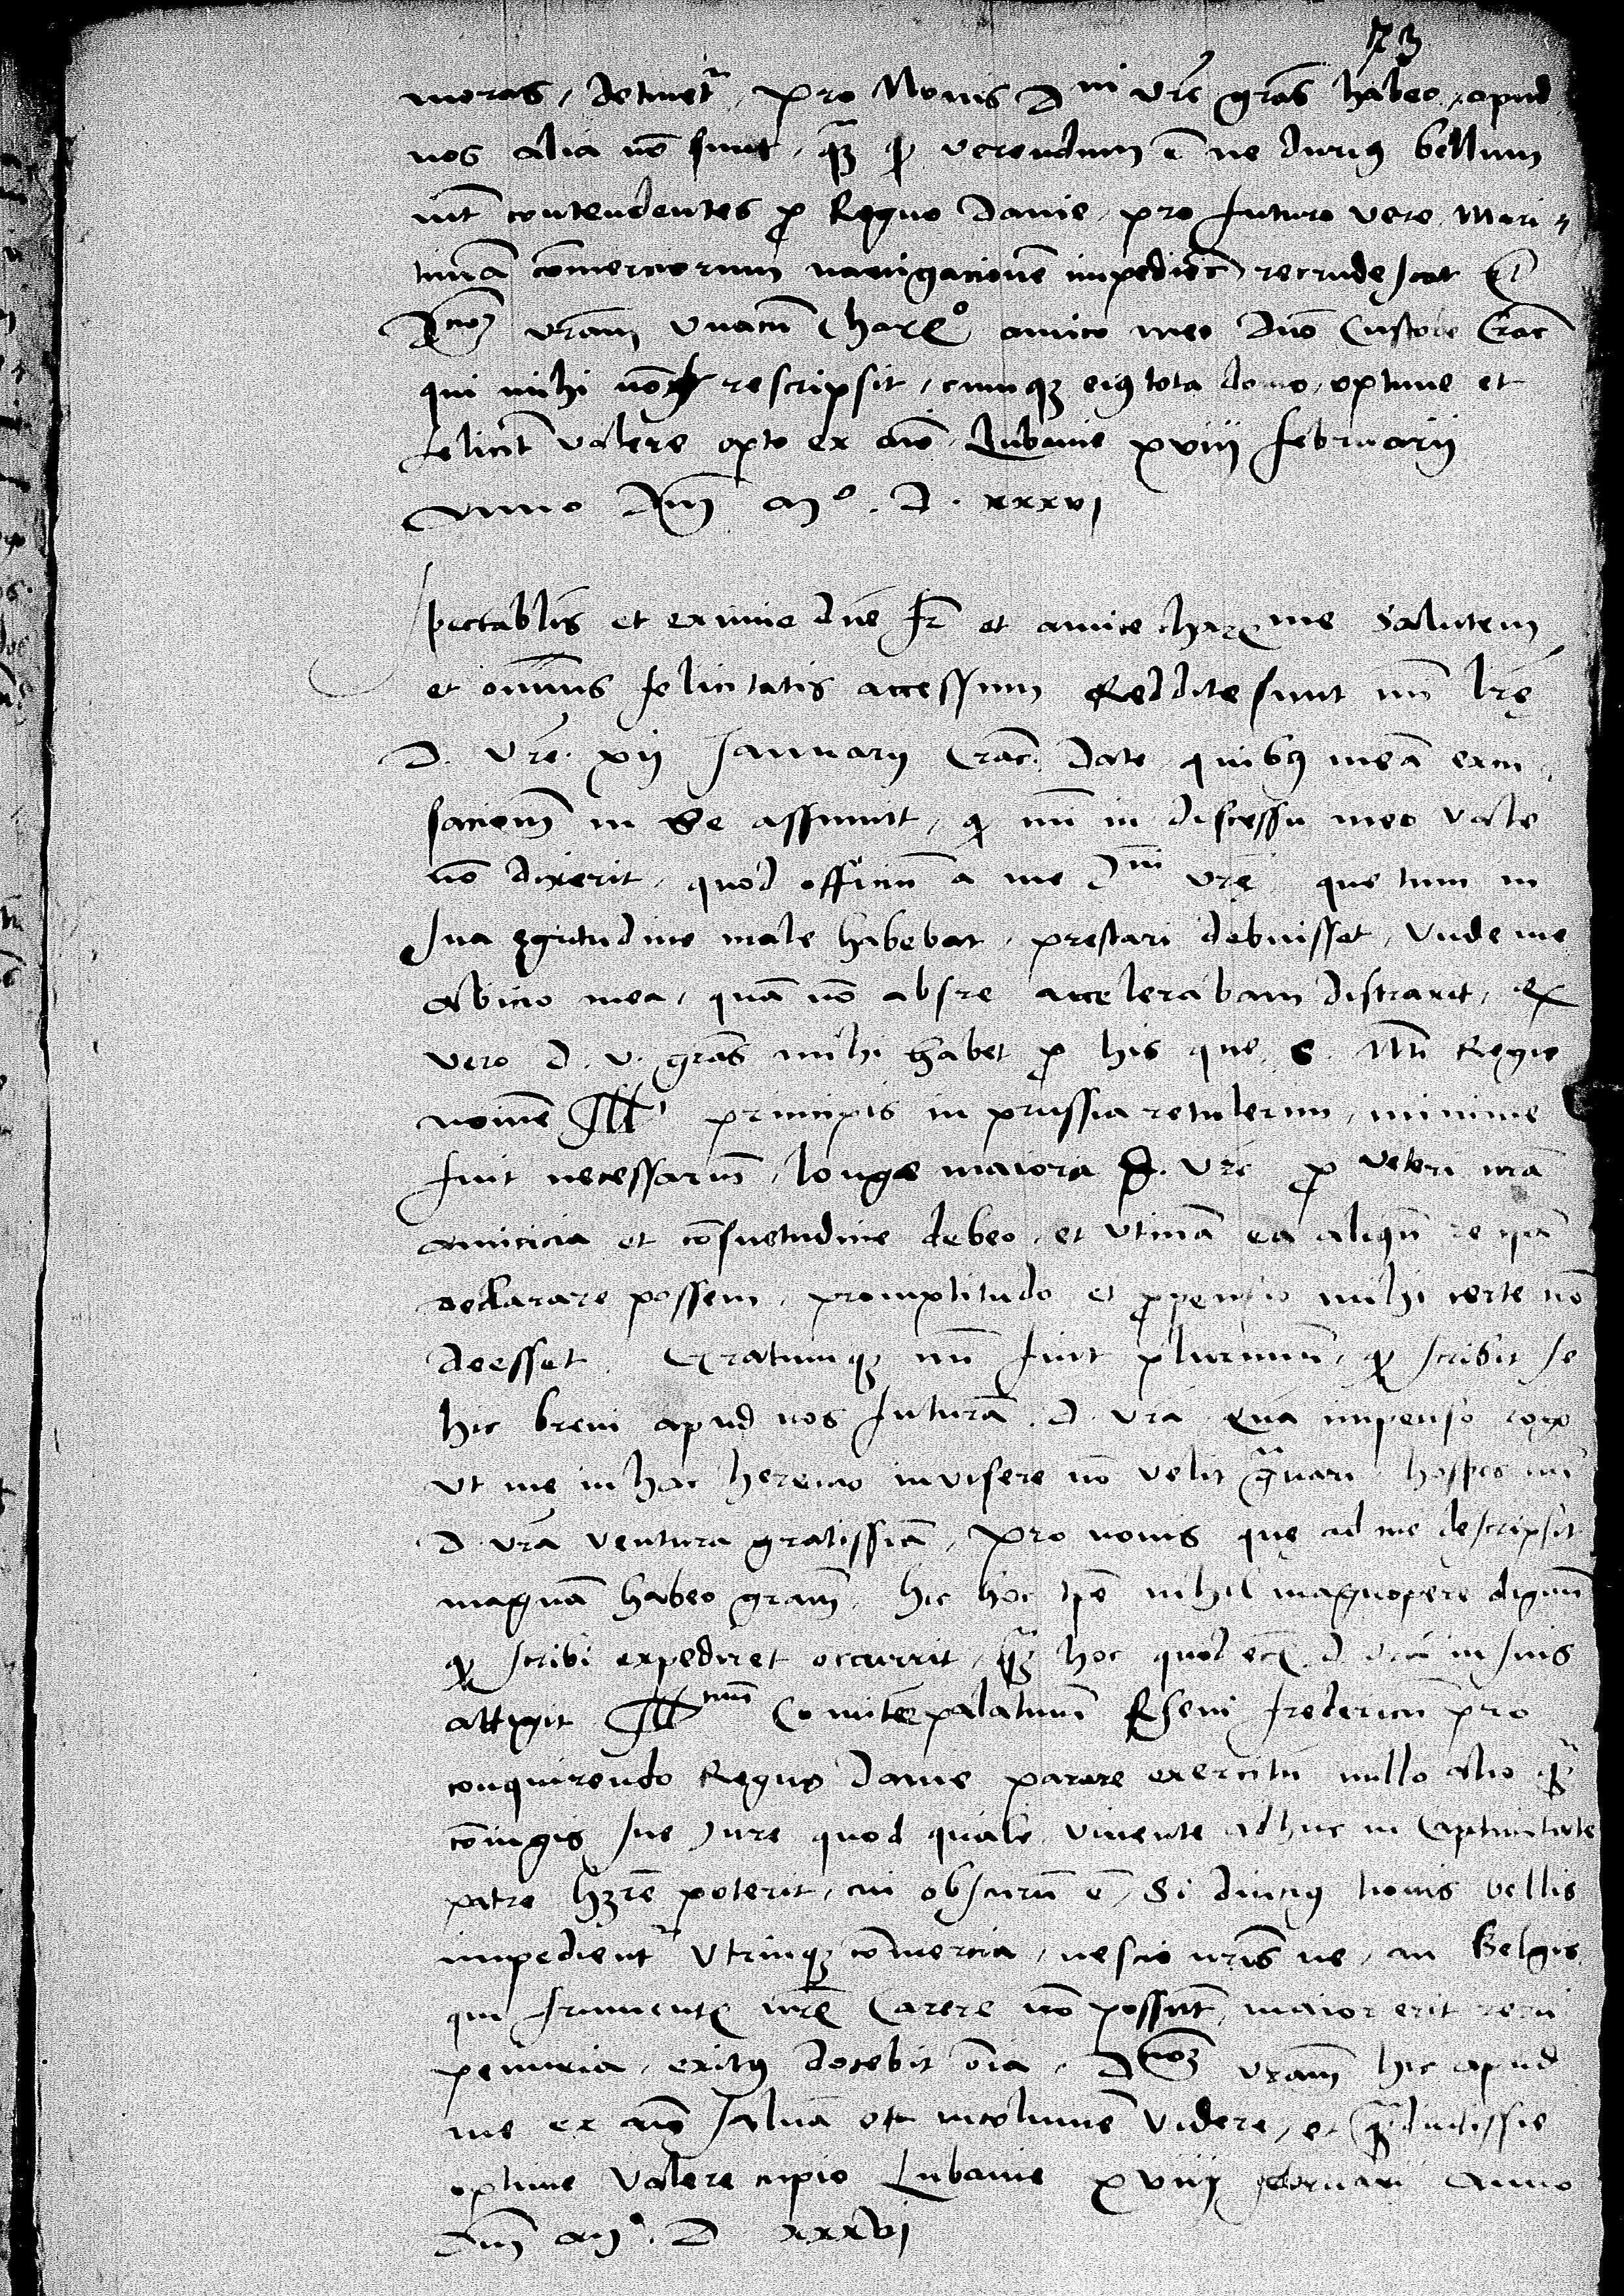 73
moras, detinet᷑, pro Nouis Dni vr̃e gr̃as habeo, apud
nos alia nõ sunt, q̃ꝫ ꝙ verendum ẽ ne durius bellum
int̃ contendentes ꝓ Regno Danie, pro futuro vere Mari-
timã com̃erciorum nauigacionẽ impediẽs recrudescat Et
Dcioꝫ vr̃am vnacũ Charmo amico meo dño Custode Crac̃
qui mihi nõ rescripsit, cumqꝫ eius tota domo, optime et
felicit̃ valere opto ex aĩo. Lubauie xviij februarij
Anno Dñi Mo. D. xxxvj
Spectabilis et eximie dñe fr̃ et amice charme Salutem
et oĩmis felicitatis accessum Reddite sunt mi lr̃ę
D. vr̃e. xij Januarij Crac̃. date quibus meã excu-
sacionem in se assumit, ꝙ mi in discessu meo vale
nõ dixerit, quod officium a me Dni vr̃ę, que tum in
sua egritudine male habebat, prestari debuisset, vnde me
abicio mea, quã nõ abs re accelerabam distraxit, Ex
vero d. v. gr̃as mihi habet ꝓ his que S. Mti Regie
noĩne Illmi principis in prussia retulerim, minime
fuit necessarium, longe maiora D. vr̃e ꝓ veteri nr̃a
amicicia et cõsuetudine debeo, et vtinã ea aliqũ re ip̃a
declarare possem, promptitudo et ꝓpensio mihi certe nõ
deesset. Gratumqꝫ mi fuit plurimum, ꝙ scribit se
hic breui apud nos futurã. D. vr̃a quã impenso rogo
vt me in hac heremo inuisere nõ velit grauari hospes mi
D. vr̃a ventura gratissĩa, Pro nouis que ad me descripsit
magnã habeo gr̃am, hic hoc tp̃e nihil magnopere dignum
ꝙ scribi expediret occurrit, q̃ꝫ hoc quod eciã D. vr̃a in suis
attigit Illtrium Comitẽ palatinum Rheni fredericum pro
conquirendo Regno Danie parare exercitũ nullo alio q̃ꝫ
cõiugis sue Jure quod quale viuente adhuc in captiuitate
patre hr̃e poterit, cui obscurũ ẽ, Si diucius nouis bellis
impedient᷑ vtrinqꝫ com̃ercia, nescio nr̃is ne, an Belgis
qui frumento nr̃o carere nõ possunt, maior erit rerũ
penuria, exitus docebit oĩa, Dnoꝫ vr̃am hic apud
me ex aĩo saluã et incolumẽ videre, et q̃ꝫdiutissie
optime valere cupio Lubauie xviij februarij Anno
Dñi Mo. D xxxvj